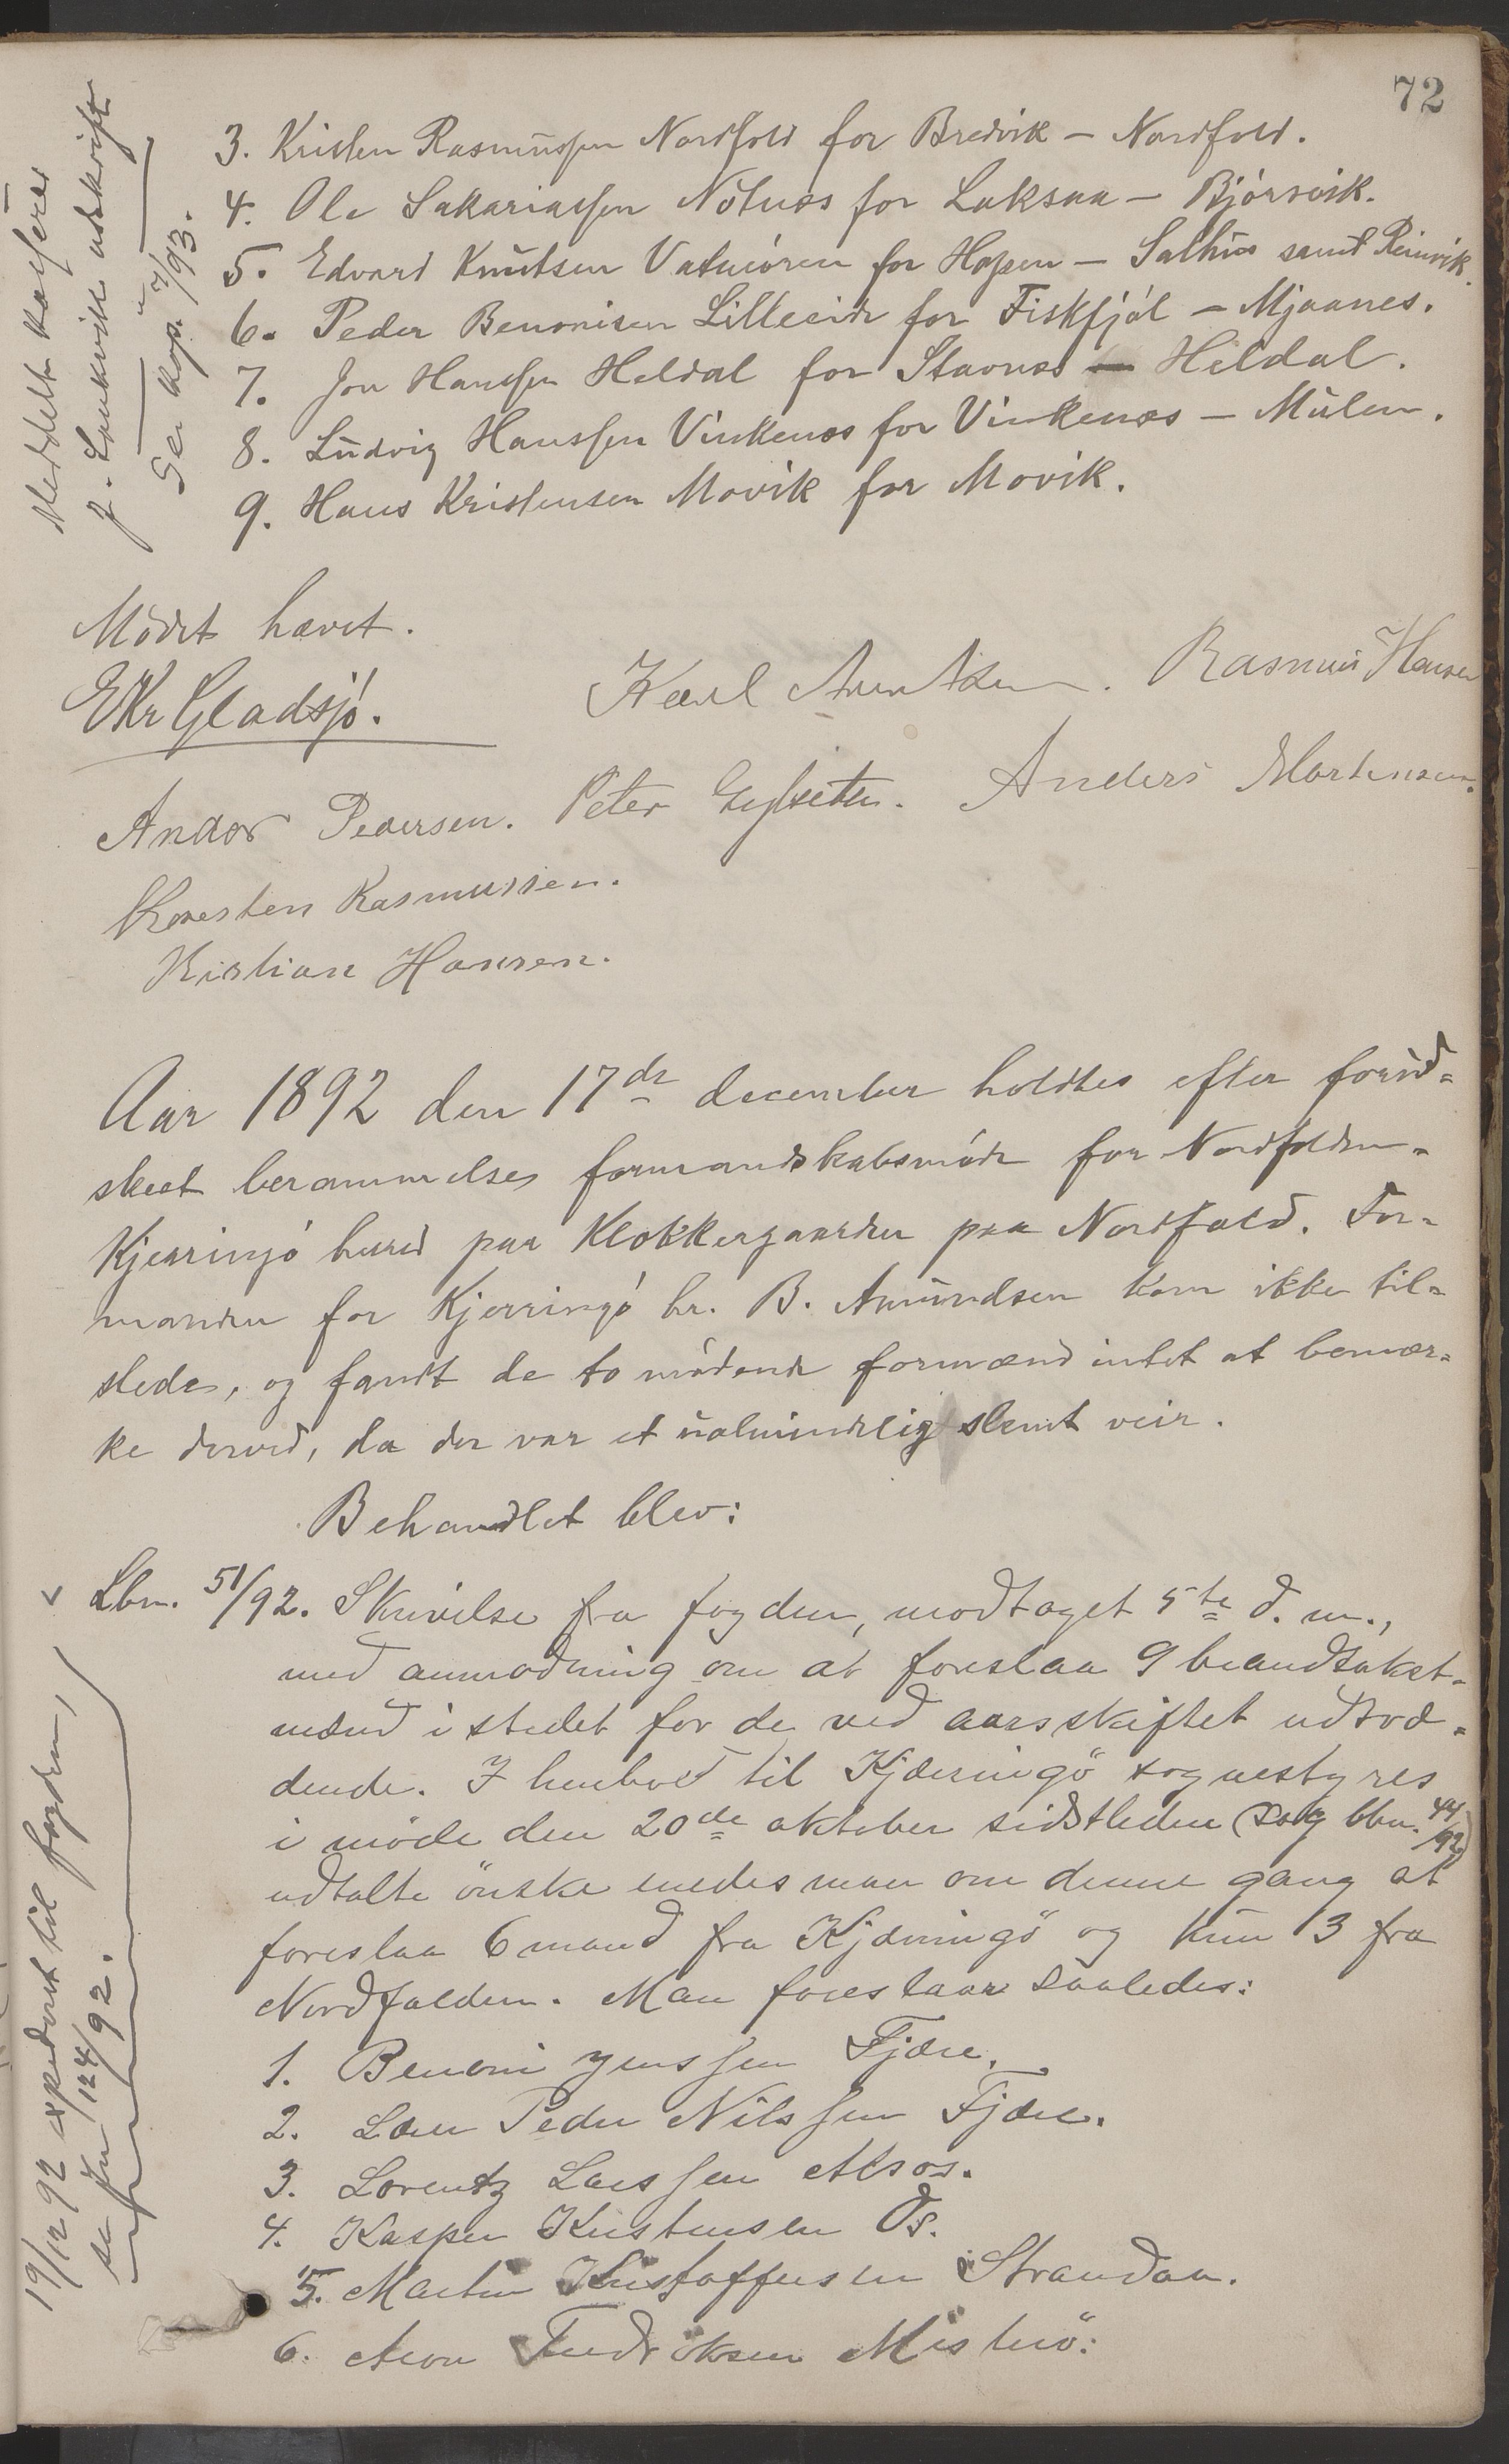 72
3. Kristen Rasmussen Nordfold for Bredvik - Nordfold.
4. Ole Sakariassen Nötnæs for Laksaa - Bjørnvik.
5. Edvard Knutsen Vatnøren for Hopen - Salhus samt Reinvik.
6. Peder Benonisen Lilleeide for Fiskfjøl - Mjaanes.
7. Jon Hanssen Heldal for Stavnæs - Heldal.
8. Ludvig Hanssen Vinkenæs for Vinkenæs - Mulen.
9. Hans Kristensen Movik for Movik.
Meddelt kasserer
J. Lønkvik udskrift
Se kop. 7/93.
Mødet hævet.
E Kr Gladsjø.
Karl Arentsen. Rasmus Hansen
Andor Pedersen. Peter Gylseth. Anders Mortensen.
Thoresten Rasmussen.
Kristian Hansen.
Aar 1892 den 17de december holdtes efter forud-
skeet berammelse formandskabsmøde for Nordfolden-
Kjerringø herred paa Klokkergaarden paa Nordfold. For-
manden for Kjerringø hr. B. Amundsen kom ikke til-
stede, og fandt de to mødende formænd intet at bemær-
ke derved, da der var et ualmindelig slemt veir.
Behandlet blev:
Lbn. 51/92. Skrivelse fra fogden, modtaget 5te d. m.,
med anmodning om at foreslaa 9 brandtakst-
mænd i stedet for de ved aarsskiftet udtræ-
dende. I henhold til Kjærringö sognestyres
i möde den 20de oktober sidstleden (sag lbn. 44/92)
udtalte önske enedes man om denne gang at
foreslaa 6 mand fra Kjærringö og kun 3 fra
Nordfolden. Man foreslaar saaledes:
1. Benoni Jenssen Fjære.
2. Lars Peder Nilssen Fjære.
3. Lorentz Larssen Alsos.
4. Kasper Kristensen Ös.
5. Martin Kristoffersen Strandaa.
6. Aron Fredriksen Mistnö.
19/12 92 expederet til fogden,
se kop. 124/92.